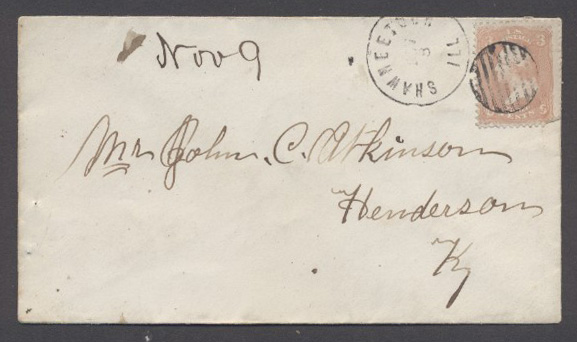 Nov 9
SHAWNEETOWN ILL
3
Mr John. C. Atkinson
Henderson
Ky